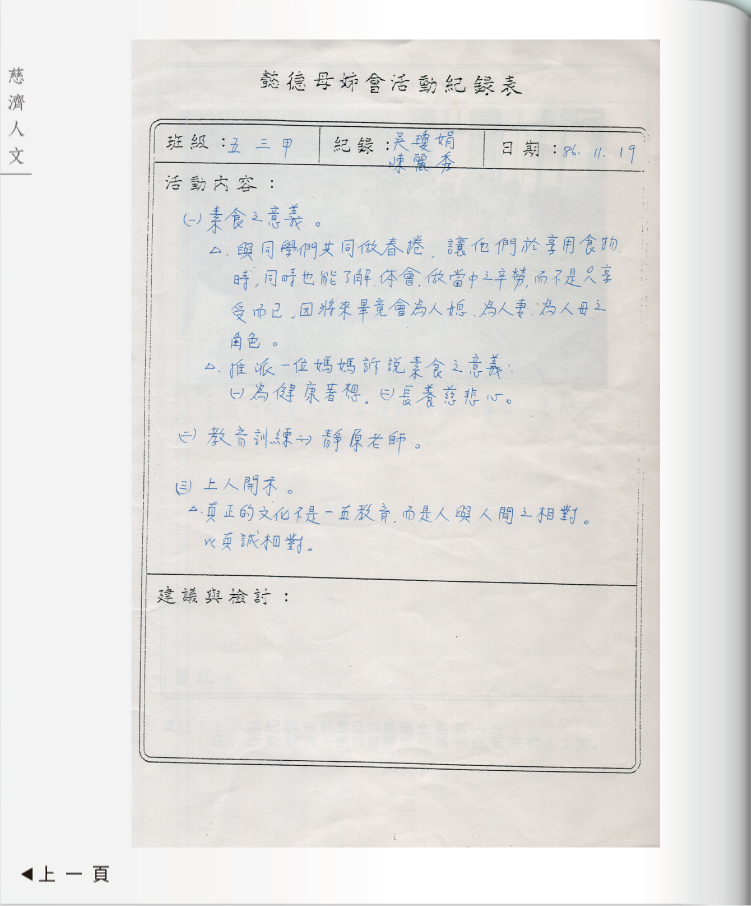 慈濟人文
懿德母姊會活動紀錄表
班級：五三甲
紀錄：吳瓊娟
陳麗秀
日期：86.11.19
活動內容：
(一)素食之意義。
△.與同學們共同做春捲，讓他們於享用食物
時，同時也能了解.体會.做當中之辛勞，而不是只享
受而已，因將來畢竟會為人媳.為人妻.為人母之
角色。
△.推派一位媽媽訴說素食之意義：
(一)為健康著想。(二)長養慈悲心。
(二)教育訓練→靜原老師。
(三)上人開示。
△.真正的文化不是一五教育，而是人與人間之相對。
以真誠相對。
建議與檢討：
◀上一頁